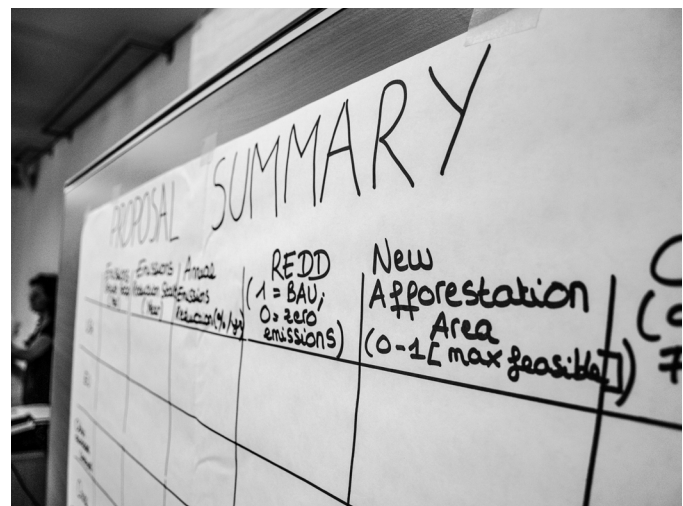 PROPOSAL SUMMARY
Emissions
Emissions
Reduction Start
Year
Annual
Emissions
Reduction (%/yr)
REDD
(1 = BAU;
0 = zero
emissions)
New
Afforestation
Area
(0-1 [max feasible])